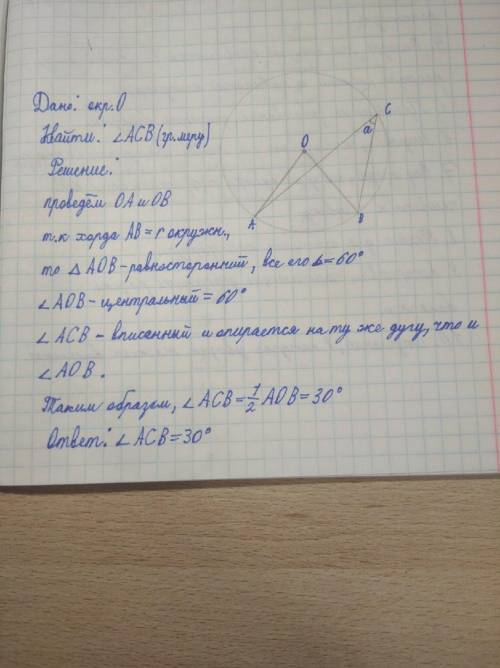 Дано: окр. О
Найти: ∠ACB (гр.меру)
Решение:
проведём OA и OB
т.к хорда AB = r окружн.,
то △ AOB - равносторонний, все его ∠ = 60°
∠AOB - центральный = 60°
∠ ACB - вписанный и опирается на ту же дугу, что и
∠AOB.
Таким образом, ∠ ACB = 1/2 AOB = 30°
Ответ: ∠ ACB = 30°
C
a
O
A
B